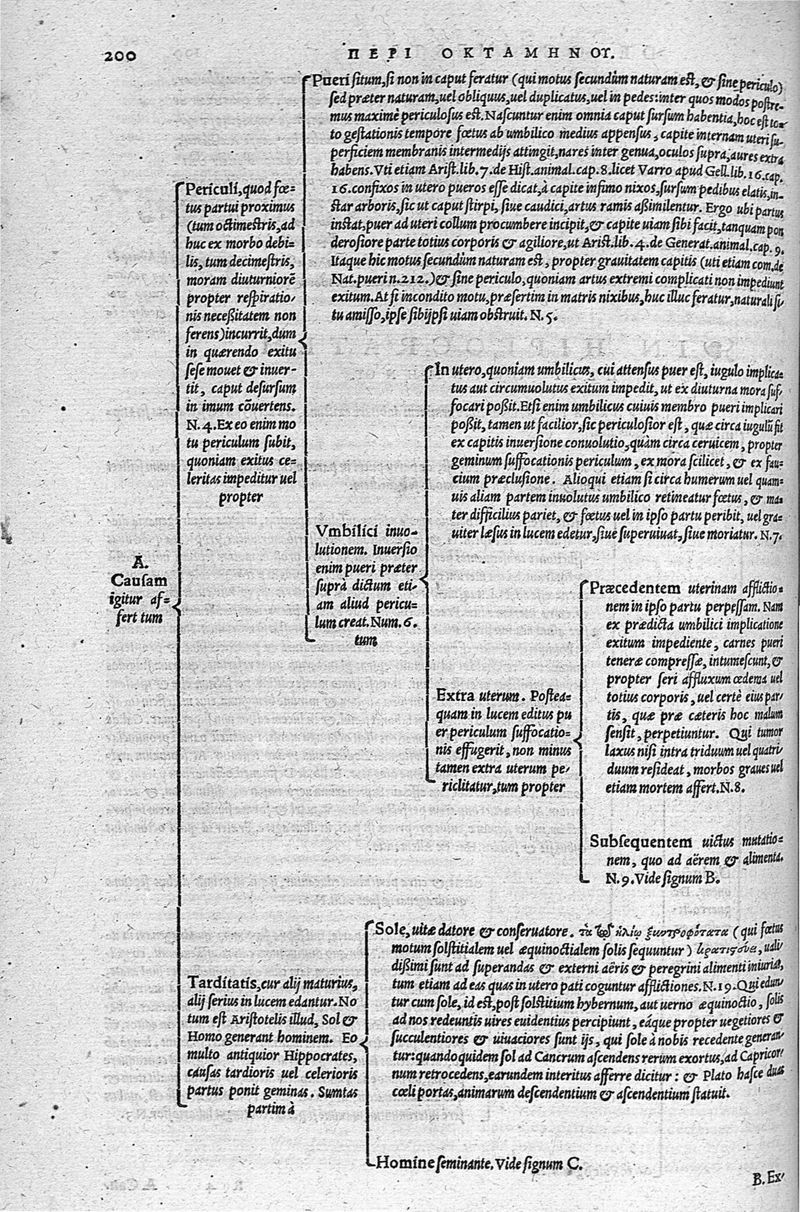 200
ΠΕΡΙ ΟΚΤΑΜΗΝΟΥ.
A.
Causam
igitur af=
fert tum
Periculi, quod fœ=
tus partui proximus
(tum octimestris, ad
huc ex morbo debi=
lis, tum decimestris,
moram diuturniorē
propter respiratio=
nis necessitatem non
ferens) incurrit, dum
in quærendo exitu
sese mouet & inuer=
tit, caput desursum
in imum cōuertens.
N.4. Ex eo enim mo
tu periculum subit,
quoniam exitus ce=
leritas impeditur uel
propter
Pueri situm, si non in caput feratur (qui motus secundùm naturam est, & sine periculo)
sed præter naturam, uel obliquus, uel duplicatus, uel in pedes: inter quos modos postre=
mus maximè periculosus est. Nascuntur enim omnia caput sursum habentia, hoc est to=
to gestationis tempore fœtus ab umbilico medius appensus, capite internam uteri su=
perficiem membranis intermedijs attingit, nares inter genua, oculos supra, aures extra
habens. Vti etiam Arist. lib. 7. de Hist. animal. cap. 8. licet Varro apud Gell. lib. 16. cap.
16. confixos in utero pueros esse dicat, à capite infimo nixos, sursum pedibus elatis, in=
star arboris, sic ut caput stirpi, siue caudici, artus ramis assimilentur. Ergo ubi partus
instat, puer ad uteri collum procumbere incipit, & capite uiam sibi facit, tanquam pon
derosiore parte totius corporis & agiliore, ut Arist. lib. 4. de Generat. animal. cap. 9.
Itaque hic motus secundùm naturam est, propter grauitatem capitis (uti etiam com. de
Nat. pueri n. 212.) & sine periculo, quoniam artus extremi complicati non impediunt
exitum. At si incondito motu, præsertim in matris nixibus, huc illuc feratur, naturali si=
tu amisso, ipse sibijpsi uiam obstruit. N. 5.
Vmbilici inuo=
lutionem. Inuersio
enim pueri præter
suprà dictum eti=
am aliud pericu=
lum creat. Num. 6.
tum
In utero, quoniam umbilicus, cui attensus puer est, iugulo implica=
tus aut circumuolutus exitum impedit, ut ex diuturna mora suf=
focari possit. Etsi enim umbilicus cuiuis membro pueri implicari
possit, tamen ut facilior, sic periculosior est, quæ circa iugulū fit
ex capitis inuersione conuolutio, quàm circa ceruicem, propter
geminum suffocationis periculum, ex mora scilicet, & ex fau=
cium præclusione. Alioqui etiam si circa humerum uel quam=
uis aliam partem inuolutus umbilico retineatur fœtus, & ma=
ter difficilius pariet, & fœtus uel in ipso partu peribit, uel gra=
uiter læsus in lucem edetur, siue superuiuat, siue moriatur. N. 7.
Extra uterum. Postea=
quam in lucem editus pu
er periculum suffocatio=
nis effugerit, non minus
tamen extra uterum pe=
riclitatur, tum propter
Præcedentem uterinam afflictio=
nem in ipso partu perpessam. Nam
ex prædicta umbilici implicatione
exitum impediente, carnes pueri
teneræ compressæ, intumescunt, &
propter seri affluxum œdema uel
totius corporis, uel certè eius par=
tis, quæ præ cæteris hoc malum
sensit, perpetiuntur. Qui tumor
laxus nisi intra triduum uel quatri
duum resideat, morbos graues uel
etiam mortem affert. N. 8.
Subsequentem uictus mutatio=
nem, quo ad aërem & alimenta.
N. 9. Vide signum B.
Tarditatis, cur alij maturius,
alij serius in lucem edantur. No
tum est Aristotelis illud, Sol &
Homo generant hominem. Eo
multo antiquior Hippocrates,
causas tardioris uel celerioris
partus ponit geminas. Sumtas
partim à
Sole, uitæ datore & conseruatore. τὰ τῷ ἡλίῳ ξυντροφώτατα (qui fœtus
motum solstitialem uel æquinoctialem solis sequuntur) κρατιστεύει, uali
dissimi sunt ad superandas & externi aëris & peregrini alimenti iniurias,
tum etiam ad eas quas in utero pati coguntur afflictiones. N. 19. Qui edun=
tur cum sole, id est, post solstitium hybernum, aut uerno æquinoctio, solis
ad nos redeuntis uires euidentius percipiunt, eáque propter uegetiores &
succulentiores & uiuaciores sunt ijs, qui sole à nobis recedente generan=
tur: quandoquidem sol ad Cancrum ascendens rerum exortus, ad Capricor=
num retrocedens, earundem interitus afferre dicitur: & Plato hasce duas
cœli portas, animarum descendentium & ascendentium statuit.
Homine seminante. Vide signum C.
B. Ex=